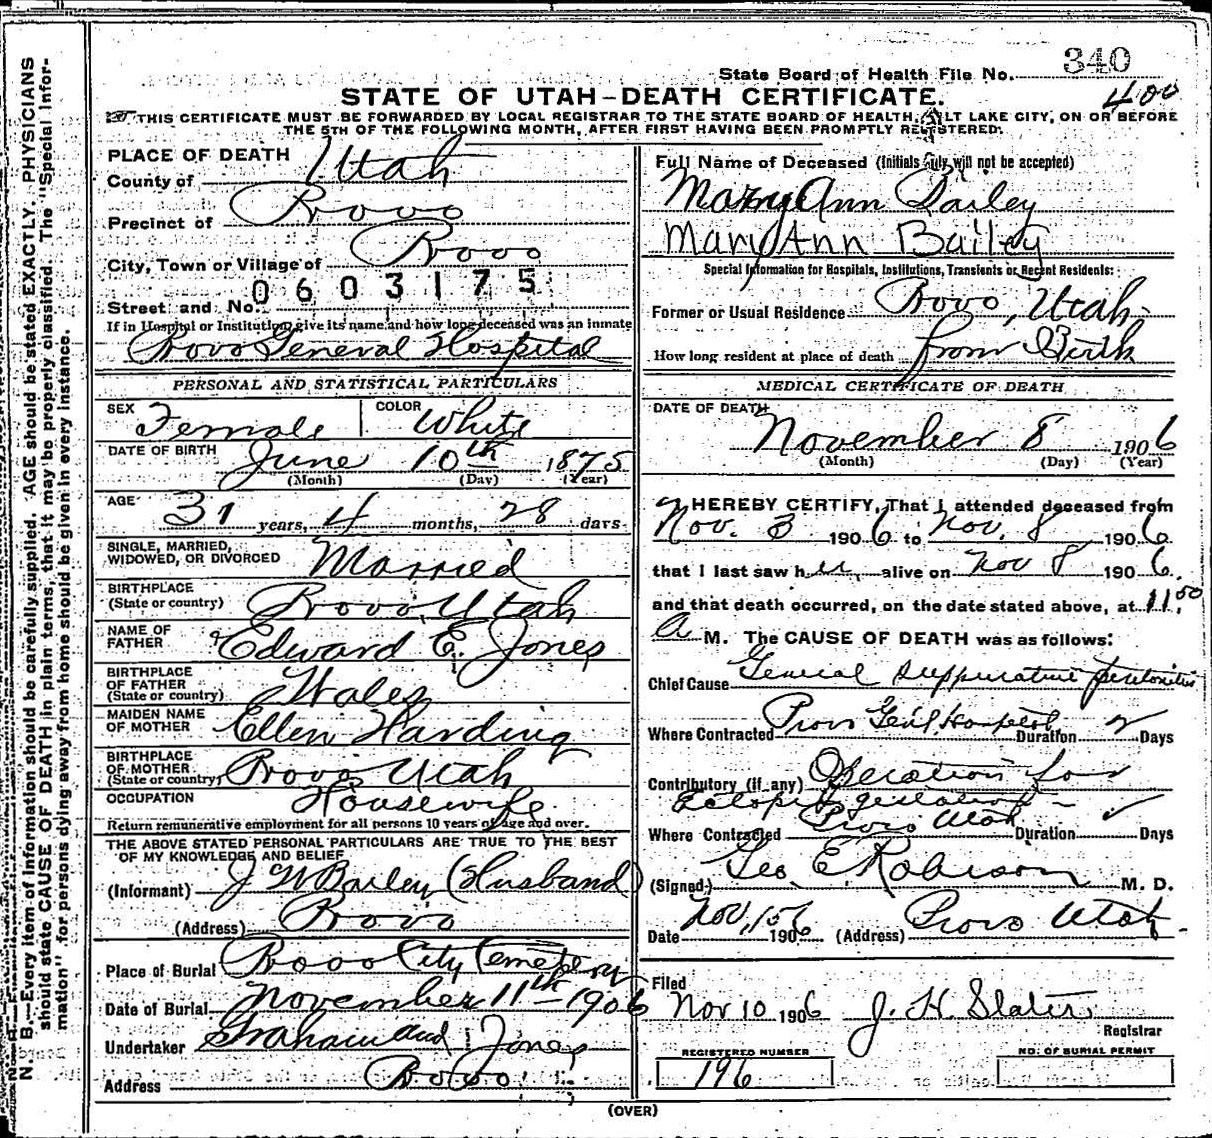 340
State Board of Health File No.
400
STATE OF UTAH-DEATH CERTIFICATE.
THIS CERTIFICATE MUST BE FORWARDED BY LOCAL REGISTRAR TO THE STATE BOARD OF HEALTH, SALT LAKE CITY, ON OR BEFORE
THE 5TH OF THE FOLLOWING MONTH, AFTER FIRST HAVING BEEN PROMPTLY REGISTERED.
N. B.—Every item of information should be carefully supplied. AGE should be stated EXACTLY. PHYSICIANS
should state CAUSE OF DEATH in plain terms, that it may be properly classified. The "Special Infor-
mation" for persons dying away from home should be given in every instance.
PLACE OF DEATH
County of Utah
Precinct of Provo
City, Town or Village of Provo
0603175
Street and No.
If in Hospital or Institution, give its name and how long deceased was an inmate
Provo General Hospital
PERSONAL AND STATISTICAL PARTICULARS
SEX Female COLOR White
DATE OF BIRTH June 10th 1875
(Month) (Day) (Year)
AGE 31 years, 4 months, 28 days
SINGLE, MARRIED,
WIDOWED, OR DIVORCED Married
BIRTHPLACE
(State or country) Provo, Utah
NAME OF
FATHER Edward E. Jones
BIRTHPLACE
OF FATHER
(State or country) Wales
MAIDEN NAME
OF MOTHER Ellen Harding
BIRTHPLACE
OF MOTHER
(State or country) Provo Utah
OCCUPATION Housewife
Return remunerative employment for all persons 10 years of age and over.
THE ABOVE STATED PERSONAL PARTICULARS ARE TRUE TO THE BEST
OF MY KNOWLEDGE AND BELIEF
(Informant) J W Bailey (Husband)
(Address) Provo
Place of Burial Provo City Cemetery
Date of Burial November 11th 1906
Undertaker Graham and Jones
Address Provo
Full Name of Deceased (Initials only will not be accepted)
Mary Ann Bailey
Mary Ann Bailey
Special Information for Hospitals, Institutions, Transients or Recent Residents:
Former or Usual Residence Provo, Utah
How long resident at place of death from Birth
MEDICAL CERTIFICATE OF DEATH
DATE OF DEATH
November 8 1906
(Month) (Day) (Year)
I HEREBY CERTIFY, That I attended deceased from
Nov. 3 1906 to Nov. 8 1906
that I last saw her alive on Nov 8 1906,
and that death occurred, on the date stated above, at 11.00
A M. The CAUSE OF DEATH was as follows:
Chief Cause General Suppurative peritonitis
Where Contracted Provo Genl Hospital Duration Days
Contributory (if any) Operation for
Ectopic gestation
Where Contracted Provo Utah Duration Days
(Signed) Geo. E. Robison M. D.
Date Nov, 15 1906 (Address) Provo Utah
Filed
Nov 10 1906 J. H. Slater
Registrar
REGISTERED NUMBER
196
NO. OF BURIAL PERMIT
(OVER)